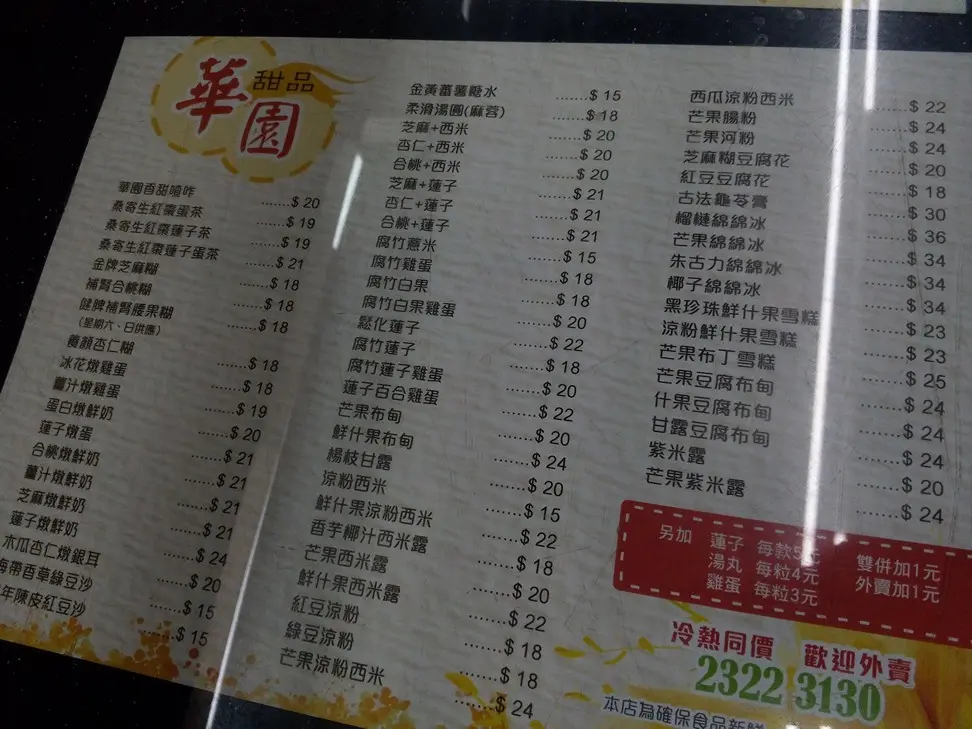 華園
甜品
華園香甜喳咋 ......$ 20
桑寄生紅棗蛋茶 ......$ 19
桑寄生紅棗蓮子茶 ......$ 19
桑寄生紅棗蓮子蛋茶 ......$ 21
金牌芝麻糊 ......$ 18
補腎合桃糊 ......$ 18
健脾補腎腰果糊 ......$ 18
(星期六、日供應)
養顏杏仁糊 ......$ 18
冰花燉雞蛋 ......$ 18
薑汁燉雞蛋 ......$ 19
蛋白燉鮮奶 ......$ 20
蓮子燉蛋 ......$ 21
合桃燉鮮奶 ......$ 21
薑汁燉鮮奶 ......$ 21
芝麻燉鮮奶 ......$ 21
蓮子燉鮮奶 ......$ 24
木瓜杏仁燉銀耳 ......$ 20
海帶香草綠豆沙 ......$ 15
年陳皮紅豆沙 ......$ 15
金黃蕃薯糖水 ......$ 15
柔滑湯圓(麻蓉) ......$ 18
芝麻+西米 ......$ 20
杏仁+西米 ......$ 20
合桃+西米 ......$ 20
芝麻+蓮子 ......$ 21
杏仁+蓮子 ......$ 21
合桃+蓮子 ......$ 21
腐竹薏米 ......$ 15
腐竹雞蛋 ......$ 18
腐竹白果 ......$ 18
腐竹白果雞蛋 ......$ 20
鬆化蓮子 ......$ 22
腐竹蓮子 ......$ 18
腐竹蓮子雞蛋 ......$ 20
蓮子百合雞蛋 ......$ 22
芒果布甸 ......$ 20
鮮什果布甸 ......$ 24
楊枝甘露 ......$ 20
涼粉西米 ......$ 15
鮮什果涼粉西米 ......$ 22
香芋椰汁西米露 ......$ 18
芒果西米露 ......$ 20
鮮什果西米露 ......$ 22
紅豆涼粉 ......$ 18
綠豆涼粉 ......$ 18
芒果涼粉西米 ......$ 24
西瓜涼粉西米 ......$ 22
芒果腸粉 ......$ 24
芒果河粉 ......$ 24
芝麻糊豆腐花 ......$ 20
紅豆豆腐花 ......$ 18
古法龜苓膏 ......$ 30
榴槤綿綿冰 ......$ 36
芒果綿綿冰 ......$ 34
朱古力綿綿冰 ......$ 34
椰子綿綿冰 ......$ 34
黑珍珠鮮什果雪糕 ......$ 23
涼粉鮮什果雪糕 ......$ 23
芒果布丁雪糕 ......$ 25
芒果豆腐布甸 ......$ 24
什果豆腐布甸 ......$ 24
甘露豆腐布甸 ......$ 24
紫米露 ......$ 20
芒果紫米露 ......$ 24
另加 蓮子 每款5元 雙併加1元
湯丸 每粒4元 外賣加1元
雞蛋 每粒3元
冷熱同價 歡迎外賣
2322 3130
本店為確保食品新鮮